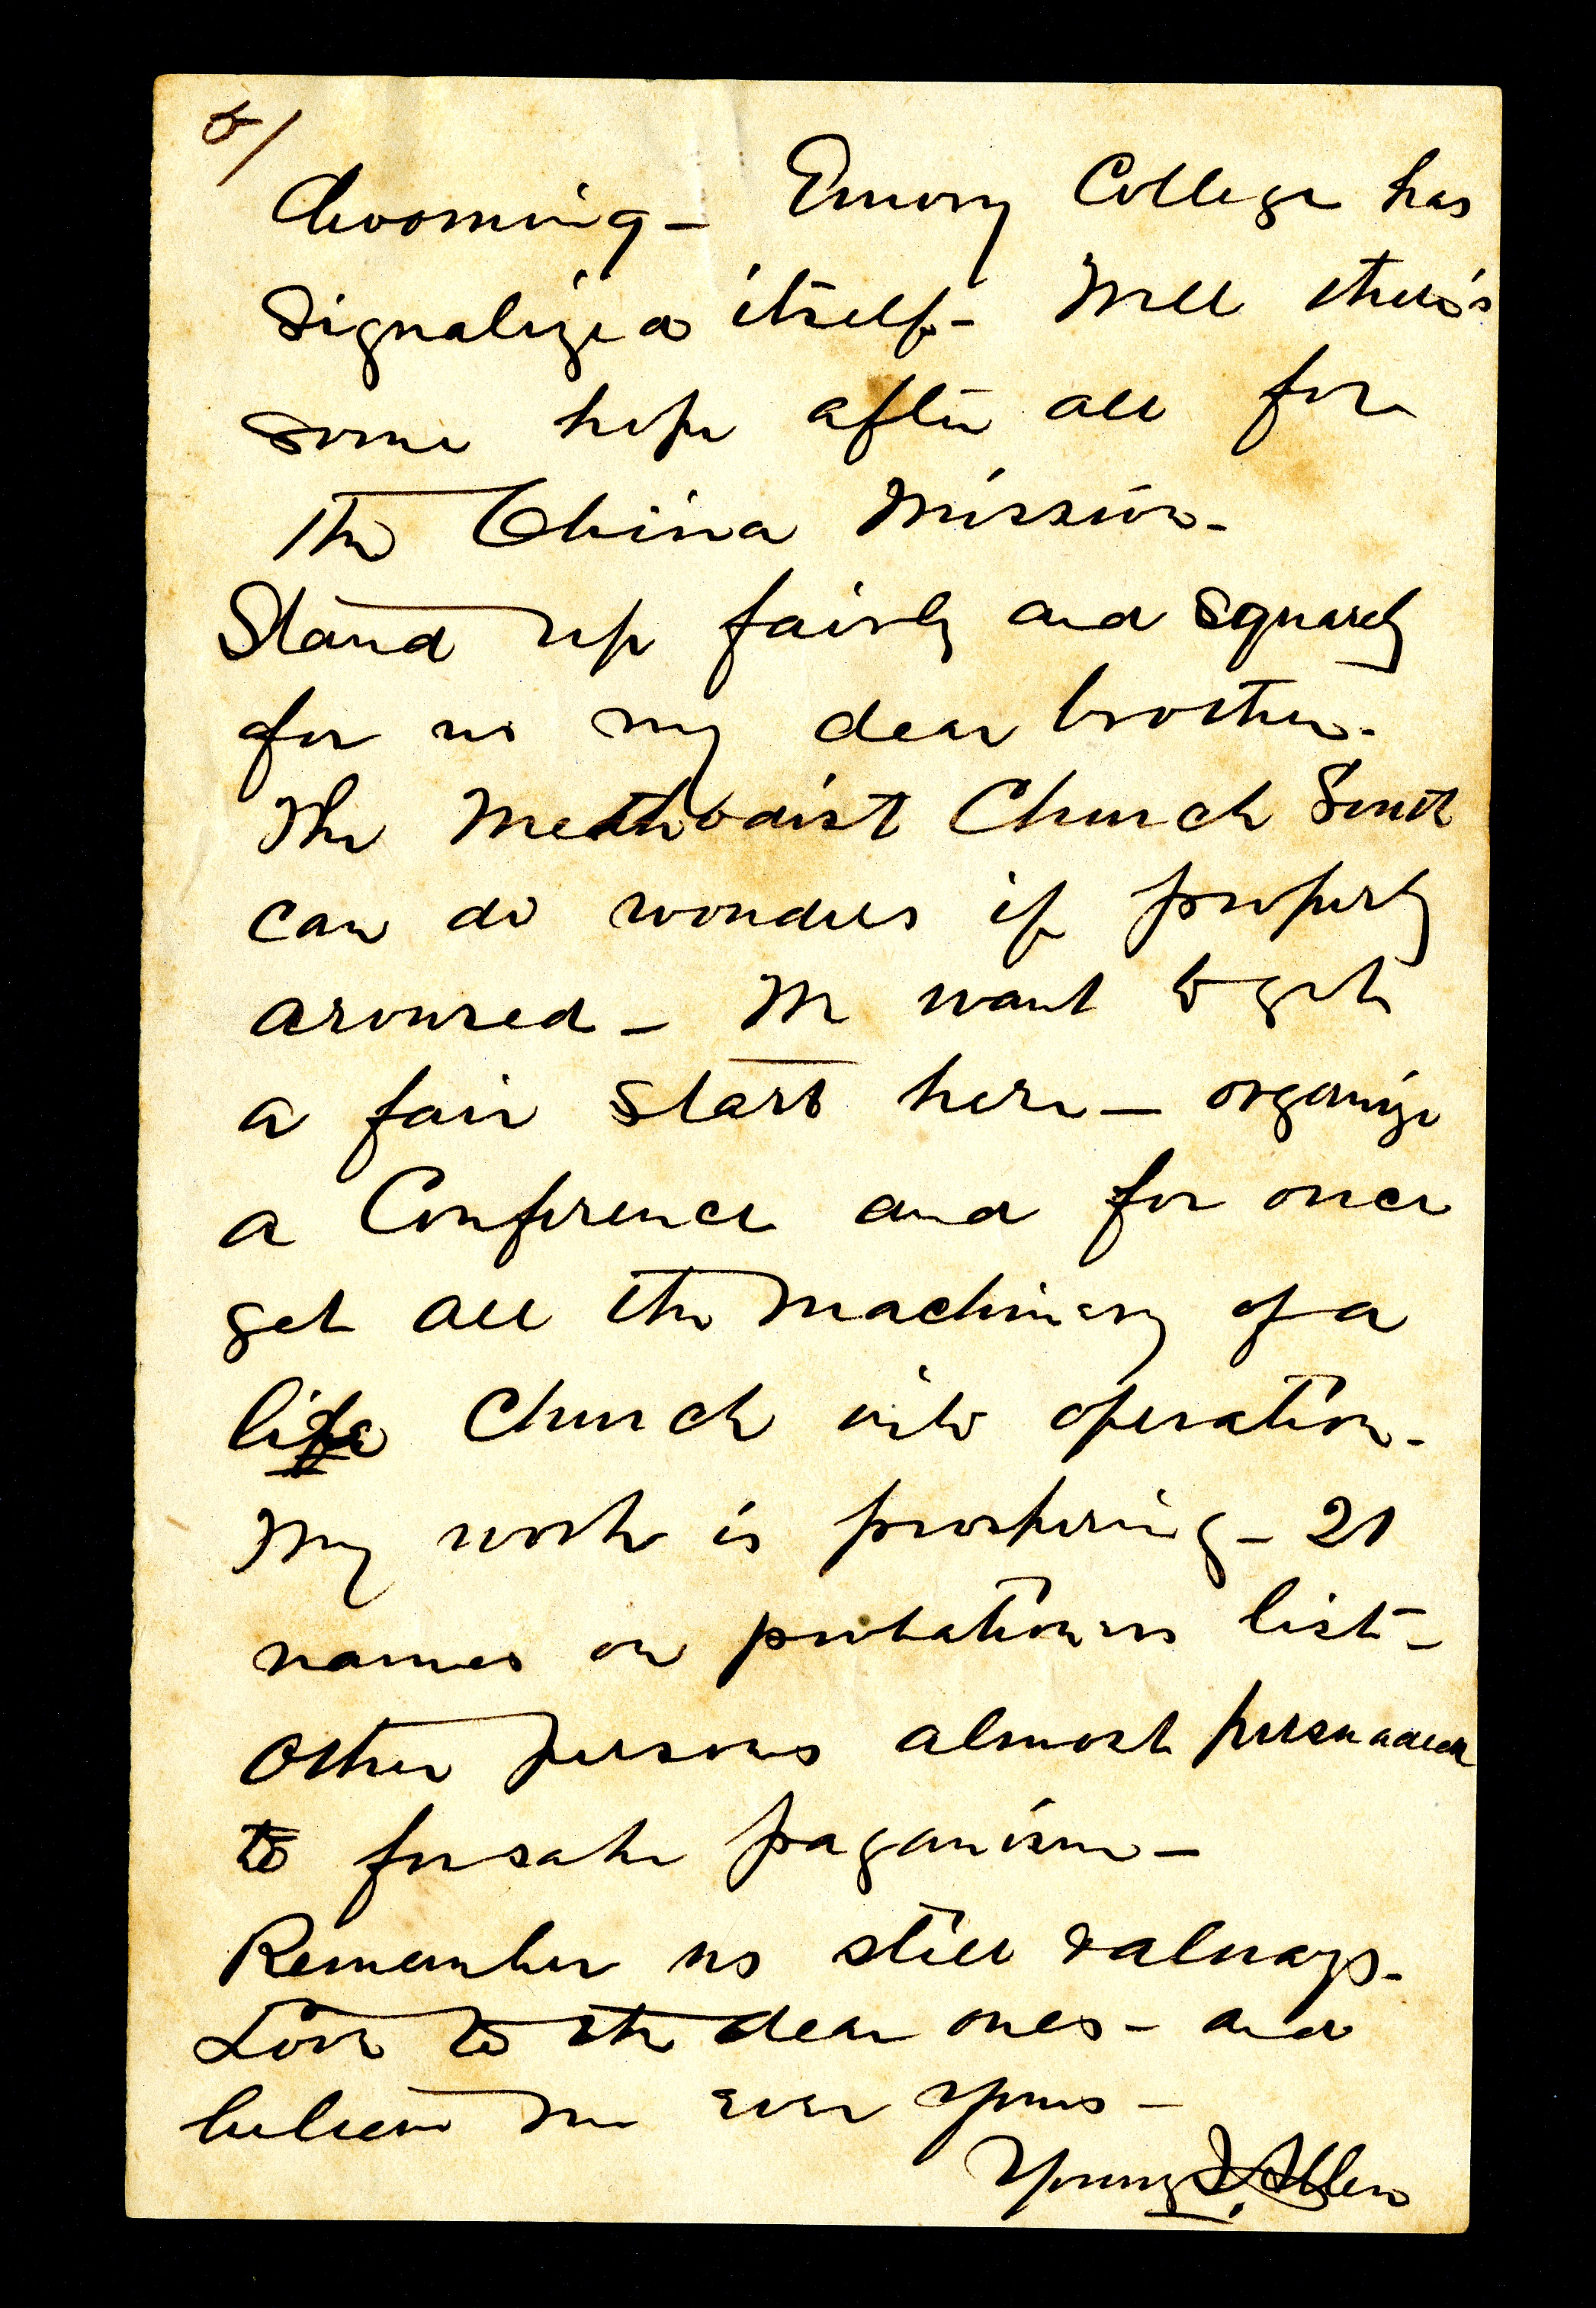 5/
booming - Emory College has
signalized itself - Well there's
some hope after all for
the China Mission -
Stand up fairly and squarely
for us my dear brother -
The Methodist Church South
can do wonders if properly
aroused - We want to get
a fair start here - organize
a Conference and for once
get all the machinery of a
life Church into operation -
My work is prospering - 21
names on probationers list -
other persons almost persuaded
to forsake paganism -
Remember us still & always -
Love to the dear ones - and
believe me ever yours -
Young J. Allen